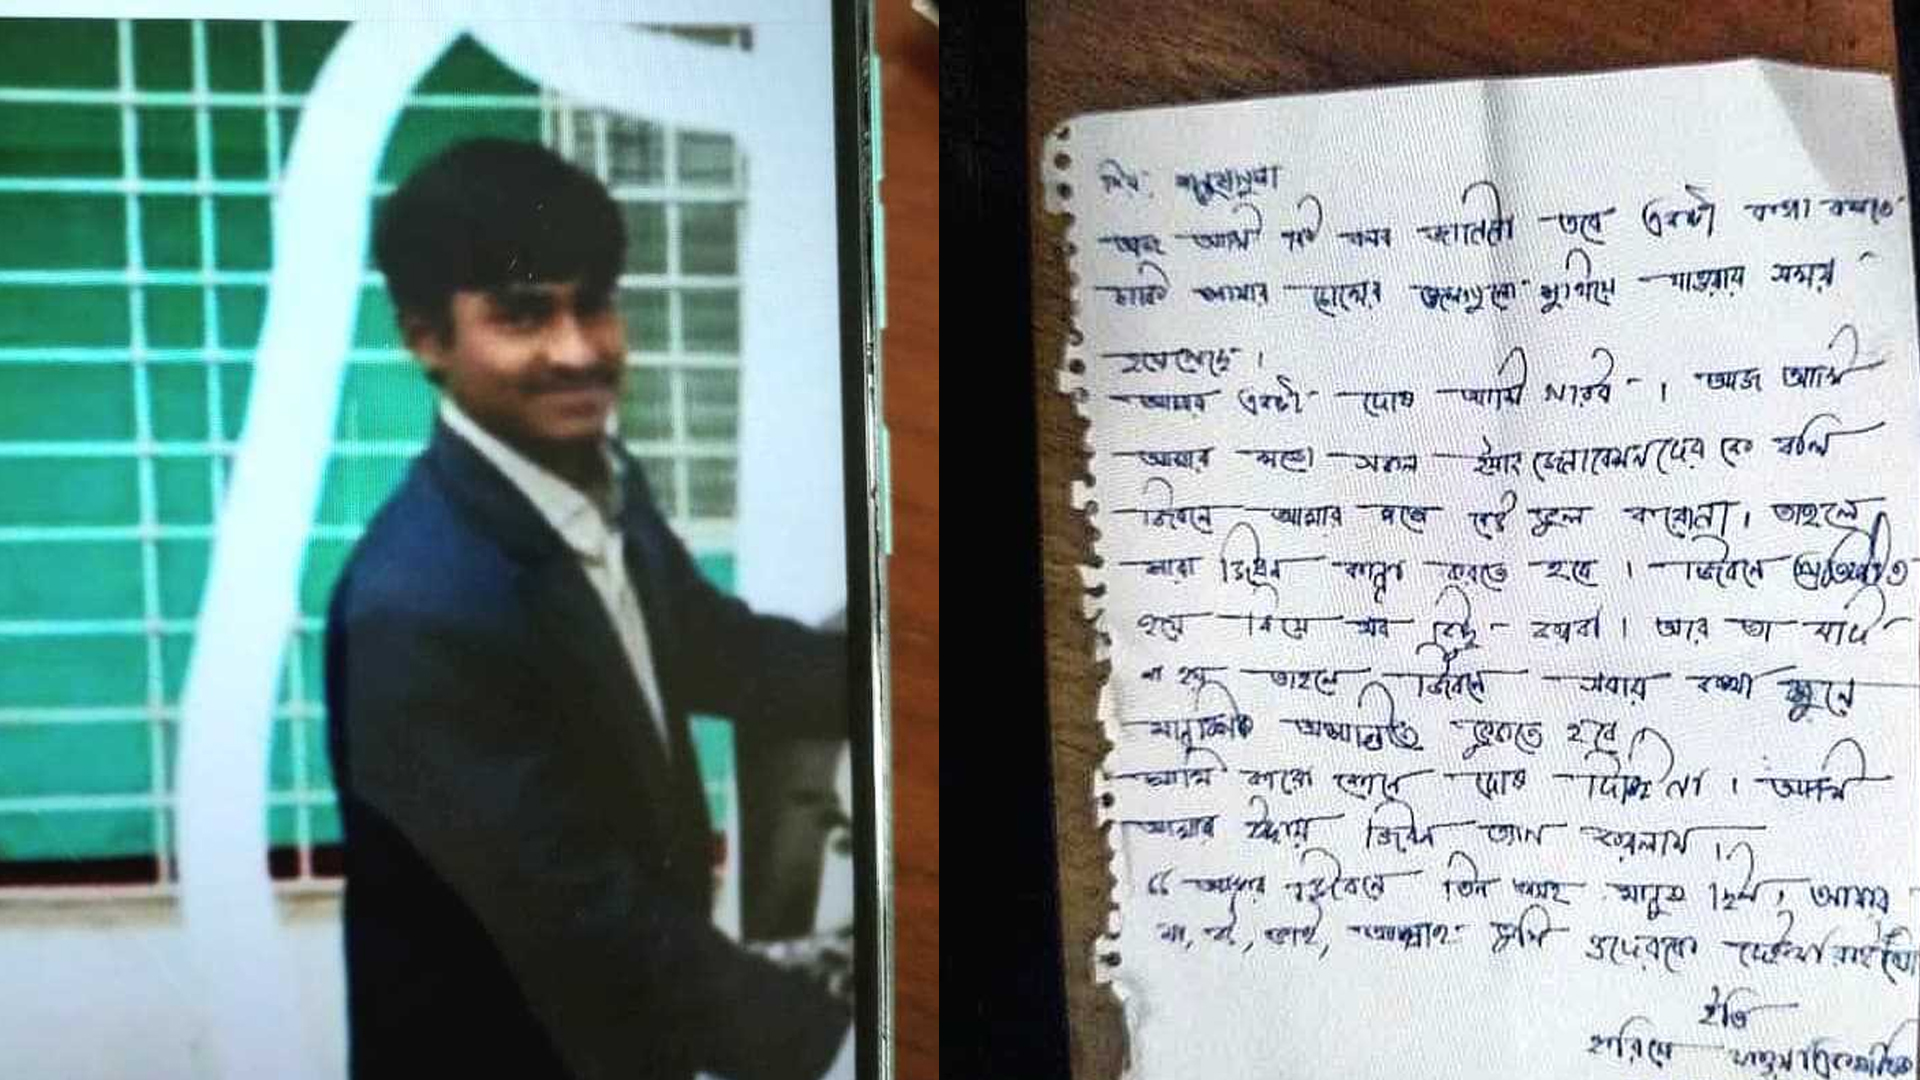 প্রিয়, 
আমি কি বলব জানিনা তবে একটা কথা বলতে
চাই আমার চোখের জলগুলো শুকিয়ে যাওয়ার সময়
হয়েগেছে।
একটা দোষ আমি । আজ আমি
আমার মতো সকল দের কে বলি
জিবনে আমার মতো এই ভুল করোনা। তাহলে
সারা জিবন কান্না করতে হবে। জিবনে প্রতিষ্ঠিত
হয়ে বিয়ে সব কিছু করবা। আর তা যদি
না হয় তাহলে জিবনে সবার কথা শুনে
মানুষিক অশান্তিতে ভুগতে হবে
আমি কারো কোনে দোষ দিচ্ছি না। আমি
আমার ইচ্ছায় জিবন ত্যাগ করলাম।
“আমার জিবনে তিন মানুষ ছিল, আমার
মা, ভাই, আল্লাহ তুমি ওদেরকে দেইখা রাইখো
ইতি